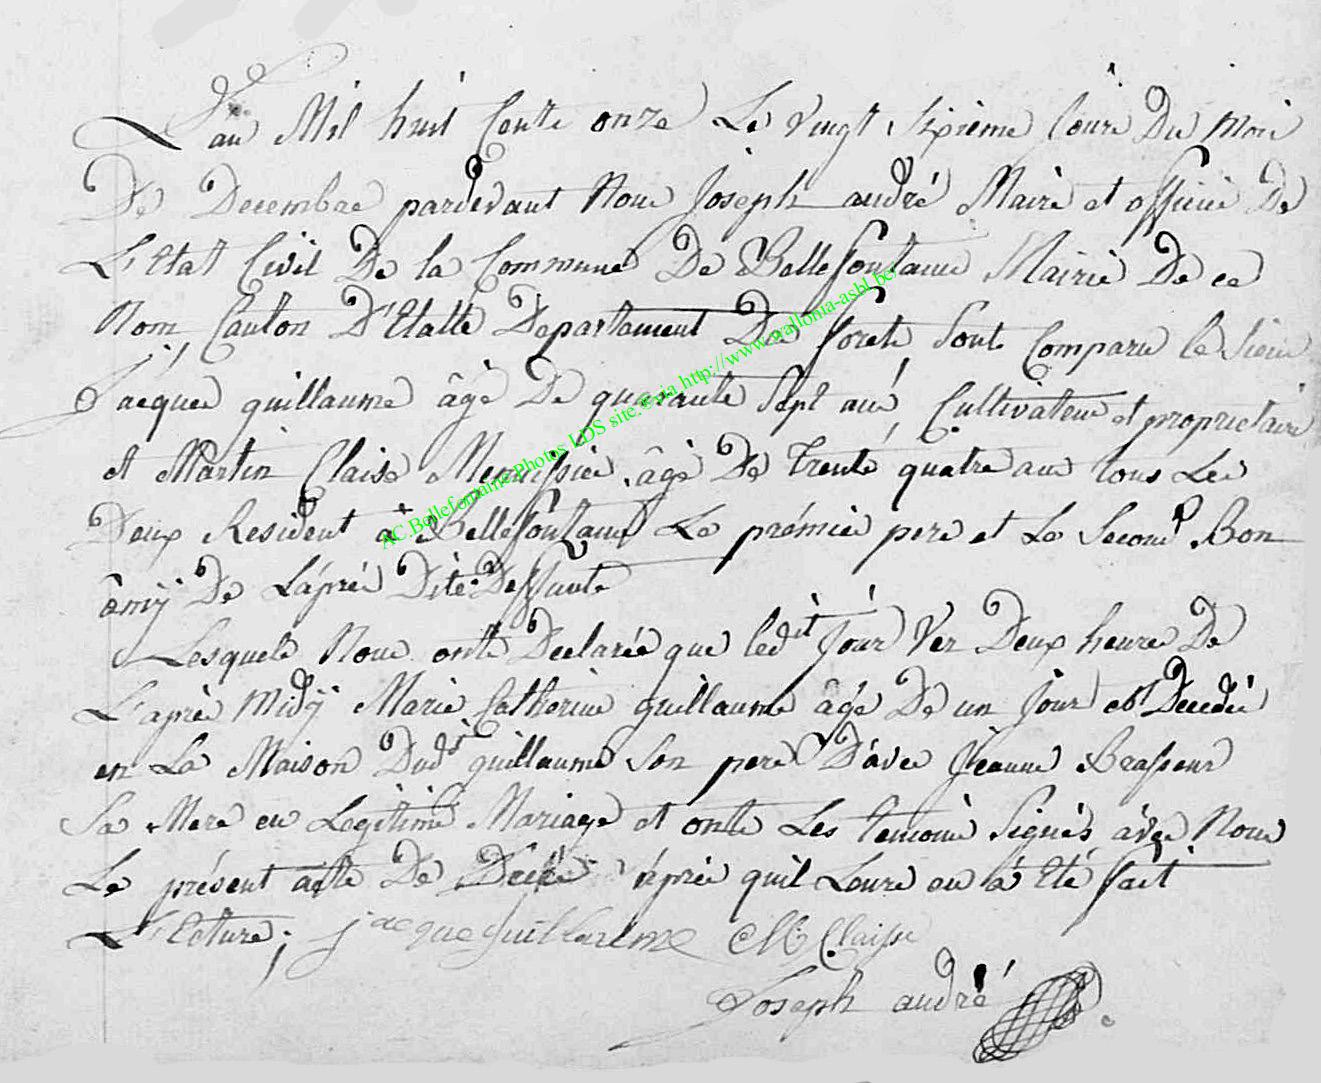 L'an Mil huit Cents onze Le Vingt Sixième Jour Du Mois
De Decembre pardevant Nous Joseph andré Maire et officier De
L'Etat Civil De la Commune De Bellefontaine Mairie De ce
Nom, Canton D'Etalle Departament Des forets Sont Comparu le Sieur
Jacques guillaume âgé De quarante Sept ans, Cultivateur et proprietaire
et Martin Claise Menuissier, âgé De Trente quatre ans tous Les
Deux Resident à Bellefontaine Le prémier pere et Le Second Bon
âmÿ De L'aprés Dite Deffunte
Lesquels Nous onts Declarée que ledit Jour Ver Deux heures De
L'après Midÿ Marie Catherine guillaume âgé De un Jour est Decedée
en La Maison Dudt guillaume Son pere D'avec Jeanne Brasseur
Sa Mere en Legitime Mariage et onts Les temoins Signés avec Nous
Le présent acte De Décés après quil Leure en à Eté fait
L'Ecture; jacque guillaume M Claisse
Joseph andré
AC Bellefontaine Photos LDS site:©via http://www.wallonia-asbl.be/